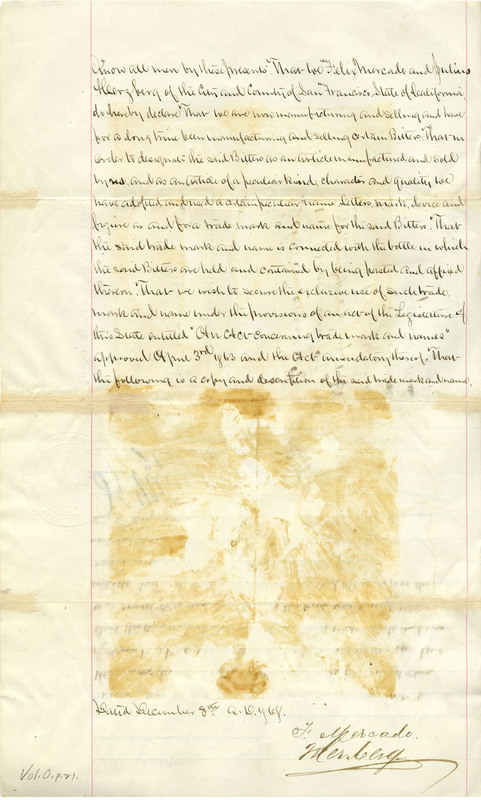 Know all men by these presents That we Felix Mercado and Julius
Herzberg of the City and County of San Francisco, State of California,
do hereby declare That we are now manufacturing and selling and have
for a long time been manufacturing and selling certain Bitters. That in
order to designate the said Bitters as an article manufactured and sold
by us, and as an article of a peculiar kind, character and quality we
have adopted and used a certain peculiar name, letters, mark, device and
figure as and for a trade mark and name for the said Bitters. That
the said trade mark and name is connected with the bottle in which
the said Bitters are held and contained by being pasted and affixed
thereon. That we wish to secure the exclusive use of such trade
mark and name under the provisions of an act of the Legislature of
this State entitled "An Act concerning trade mark and names"
approved April 3rd 1863 and the Act amendatory thereof. That
the following is a copy and description of the said trade mark and name.
Dated December 8th A.D.
F. Mercado.
Herzberg
Vol. O. p. 21.